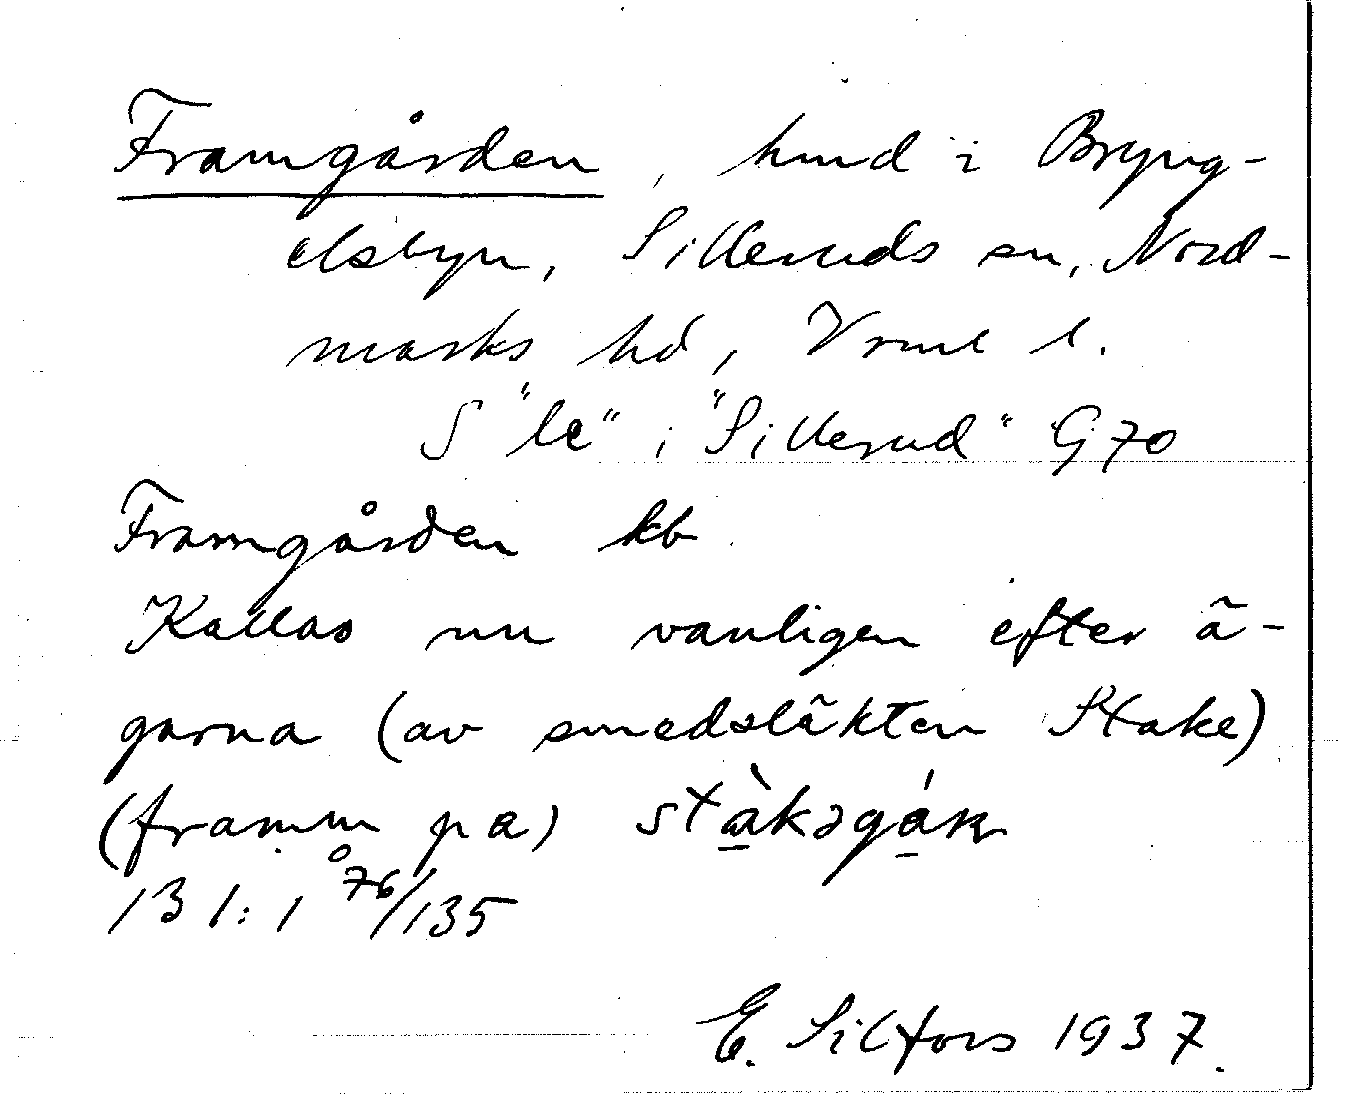 Framgården, hmd i Bryng-
elsbyn, Silleruds sn, Nord-
marks hd, Vrml l.
S "le" i "Sillerud" G 70
Framgården kb
Kallas nu vanligen efter ä-
garna (av smedsläkten Stake)
(framm på) stàkəgáɳ
131:1 76/135
E. Silfors 1937.